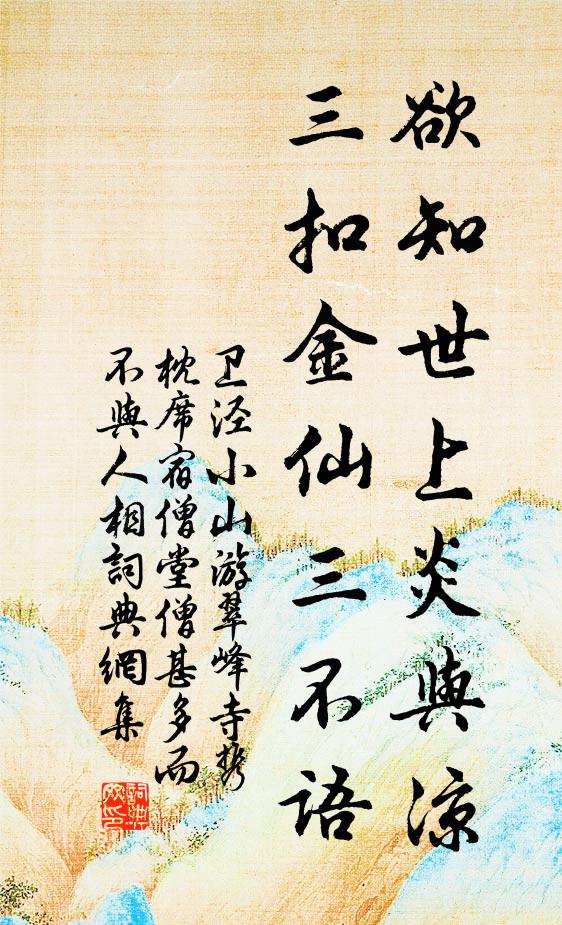 欲知世上炎與凉
三扣金仙三不语
卫泾小山游翠峰寺携
枕席宿僧堂僧甚多而
不與人相詞典網集